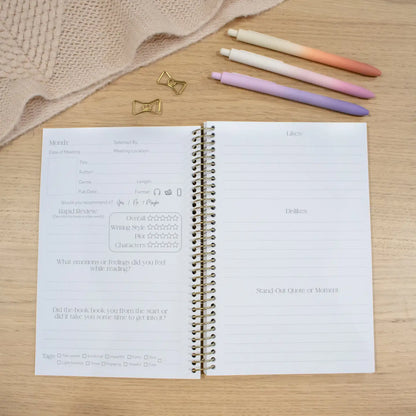 Month:
Selected By:
Date of Meeting:
Meeting Location:
Title:
Author:
Genre:
Length:
Pub Date:
Format:
Would you recommend it? Yes / No / Maybe
Rapid Review:
Overall
Writing Style
Plot
Characters
What emotions or feelings did you feel
while reading?
Did the book hook you from the start or
did it take you some time to get into it?
Tags:
Likes:
Dislikes:
Stand-Out Quote or Moment